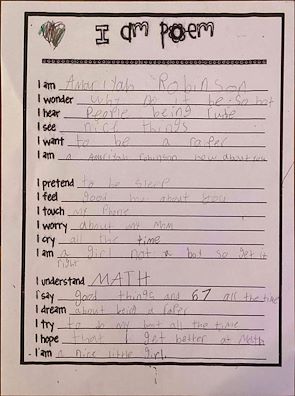 I am poem
I am Amariyah Robinson
I wonder why do it be so hot
I hear People being rude
I see nice things
I want to be a raper
I am a Amariyah robinson how about you
I pretend to be sleep
I feel good about
I touch my Phone
I worry about my Mom
I cry all the time
I am a girl not a boy so get it
right
I understand MATH
I say good things and 67 all the time
I dream about being a raper
I try to do my best all the time
I hope that I get better at Math
I am a nice little girl